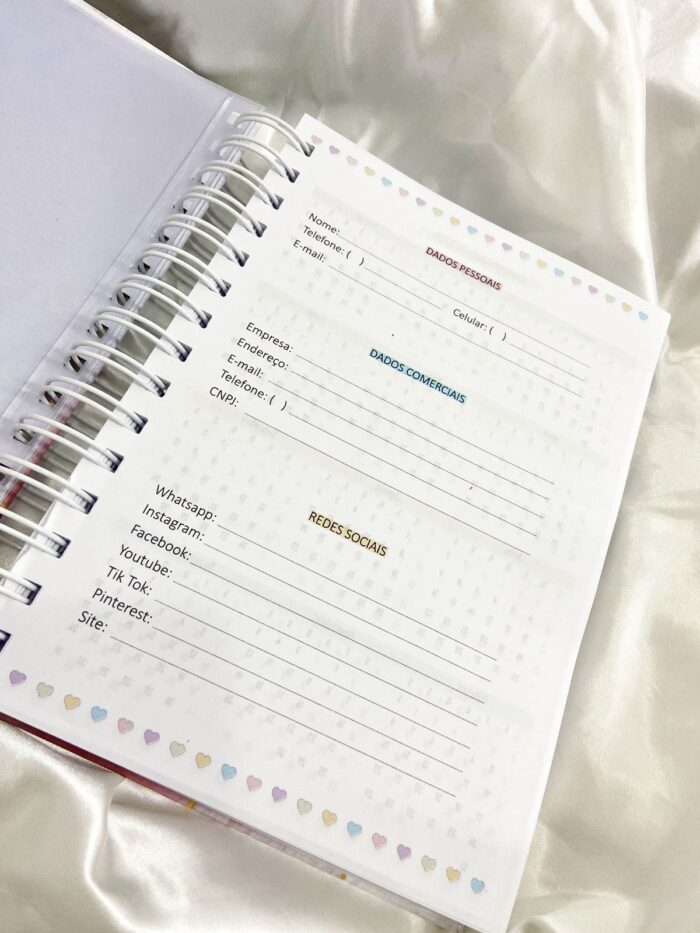 DADOS PESSOAIS
Nome:
Telefone: ( ) Celular: ( )
E-mail:
DADOS COMERCIAIS
Empresa:
Endereço:
E-mail:
Telefone: ( )
CNPJ:
REDES SOCIAIS
Whatsapp:
Instagram:
Facebook:
Youtube:
Tik Tok:
Pinterest:
Site: